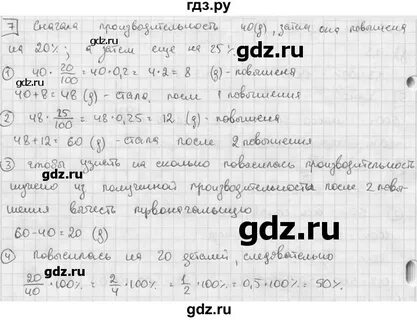 гдз.ру
7 Сначала производительность 40(g), затем она повышена
на 20%; а затем еще на 25%
gdz.ru
① 40 · 20/100 = 40 · 0,2 = 4 · 2 = 8 (g) - повышена
40+8 = 48 (g) - стало, после 1 повышения
② 48 · 25/100 = 48 · 0,25 = 12 (g) - повышена
48+12 = 60 (g) - стала после 2 повышения
gdz.ru
③ чтобы узнать на сколько повысилась производительность
нужно из получившей производительность после 2 повы-
шения вычесть первоначальную
gdz.ru
60-40 = 20 (g)
④ повысилась на 20 деталей, следовательно
20/40 · 100% = 2/4 · 100% = 1/2 · 100% = 0,5 · 100% = 50%.
gdz.ru